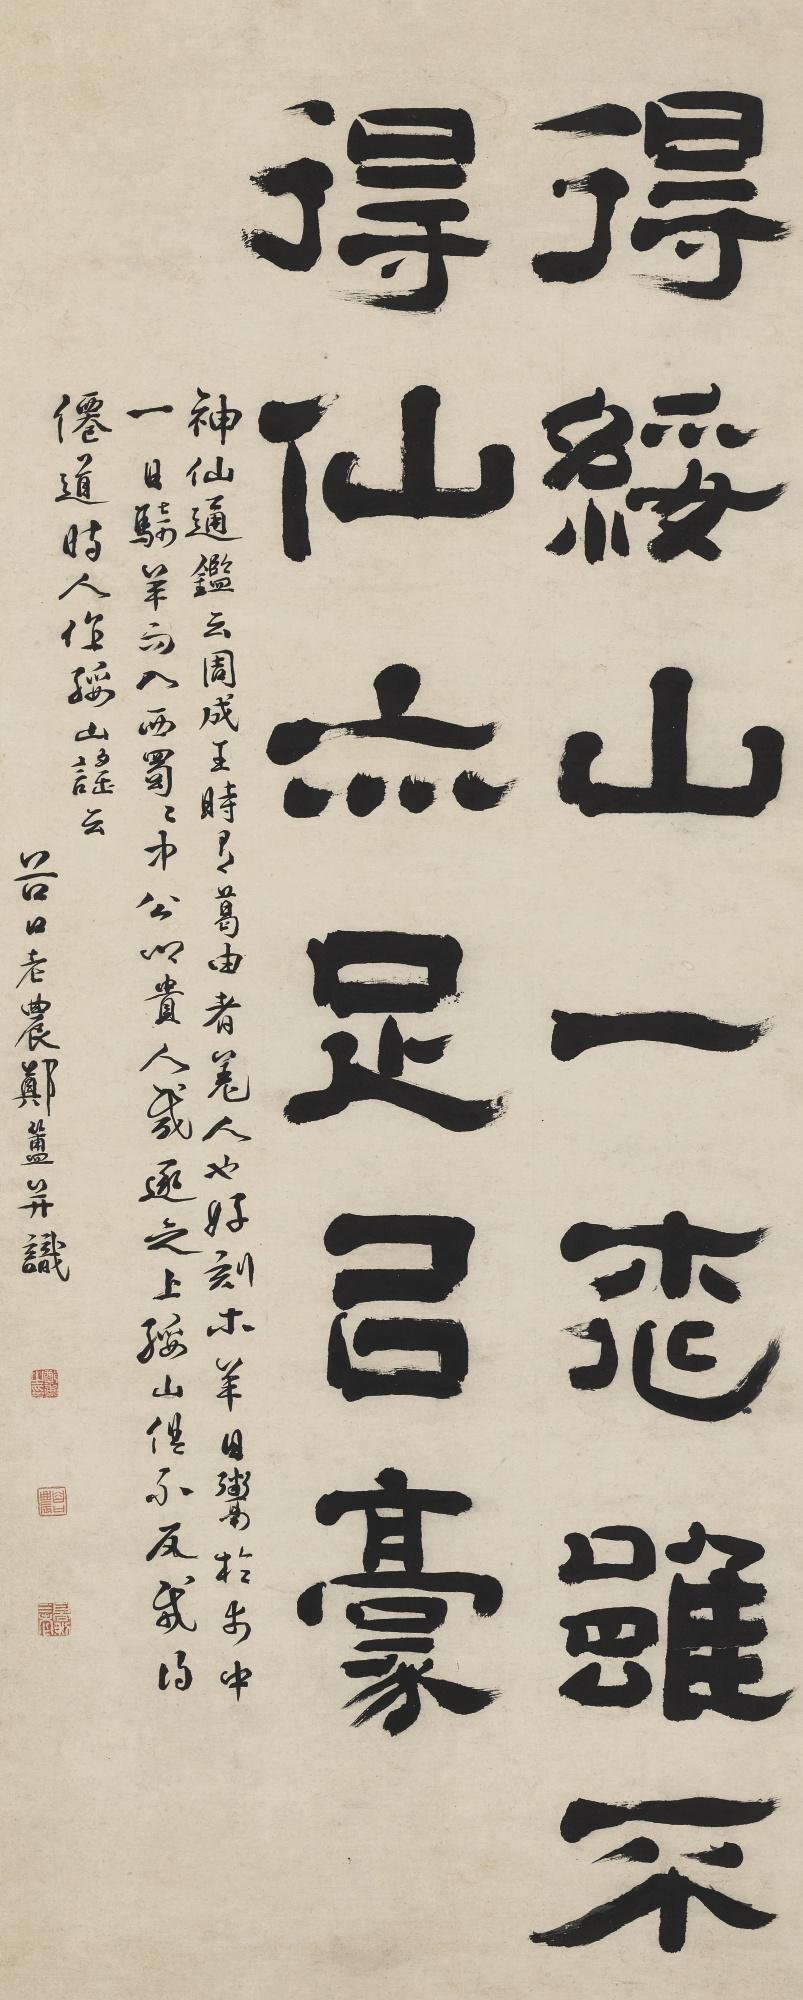 得綏山一桃雖不
得仙亦足㠯豪
神仙通鑑云周成王時有葛由者羌人也好刻木羊日鬻於市中
一日騎羊而入西蜀〻中公卿貴人咸逐之上綏山俱不反咸得
僊道時人作綏山謠云
谷口老農鄭簠并識